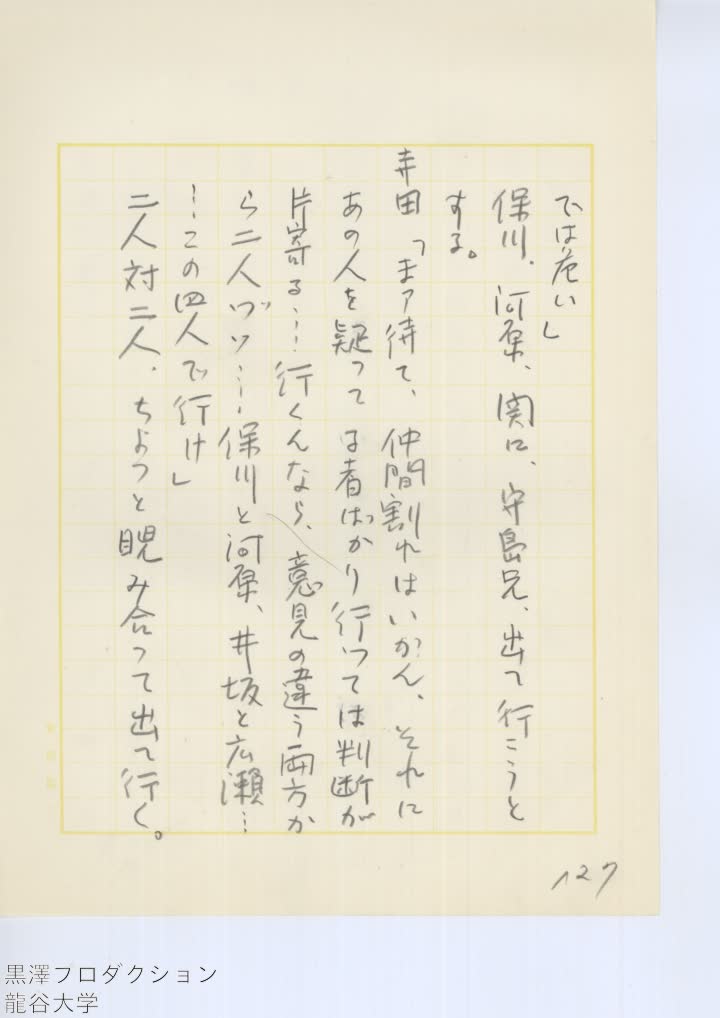 では危い」
保川、河原、関口、守島兄、出て行こうと
する。
井田「まァ待て、仲間割れはいかん、それに
あの人を疑ってる者ばかり行っては判断が
片寄る……行くんなら、意見の違う両方か
ら二人づつ……保川と河原、井坂と広瀬…
…この四人で行け」
二人対二人、ちょっと睨み合って出て行く。
127
黒澤プロダクション
龍谷大学